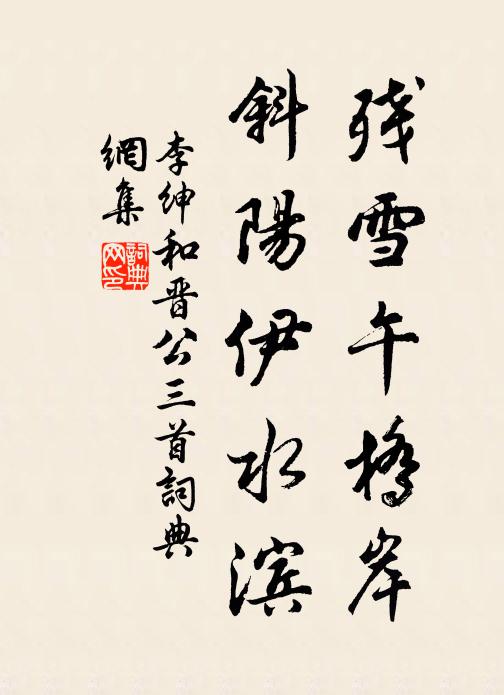 残雪午橋岸
斜陽伊水滨
李绅和晋公三首詞典
網集
詞典
网印